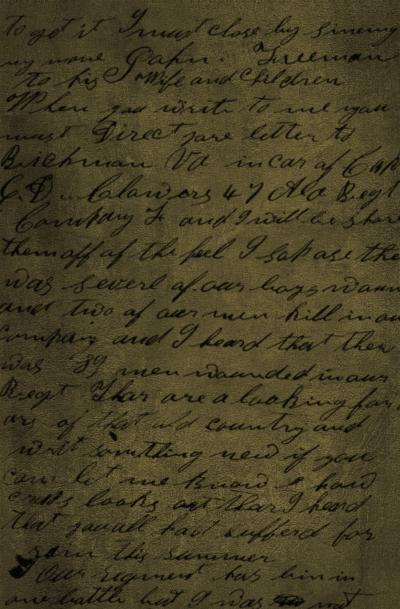 to get it I must close by sineing
my name John. Freeman
to his Wife and Children
When you write to me you
must Direct youre letter to
Richman Va in car of Cap
C. D. 47 Ala Regt
Company F and I will be shore
them off of the feel I sopase the
was severl of our boys woun
and two of our men kill in ou
Company and I heard that ther
was 89 men wounded in our
Regt Thar are a looking for
us of that old country and
writ something new if you
can let me know how
crops looks out thar I heard
that youall had sufferd for
rain this summer
Our regiment has bin in
one battle but I was not